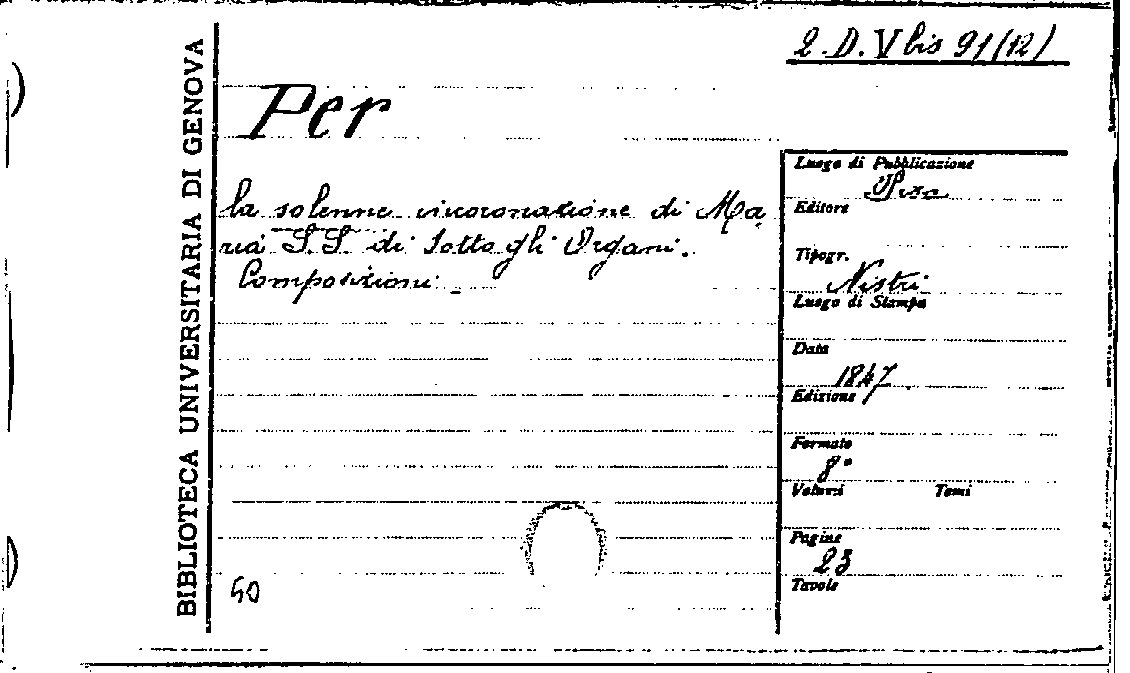 2. D. V bis 91 (12)
BIBLIOTECA UNIVERSITARIA DI GENOVA
Per
la solenne incoronazione di Ma
ria S.S. di Sotto gli Organi.
Composizioni.
50
Luogo di Pubblicazione
Pisa
Editore
Tipogr.
Nistri
Luogo di Stampa
Data
1847
Edizione
Formato
8°
Volumi Tomi
Pagine
23
Tavole